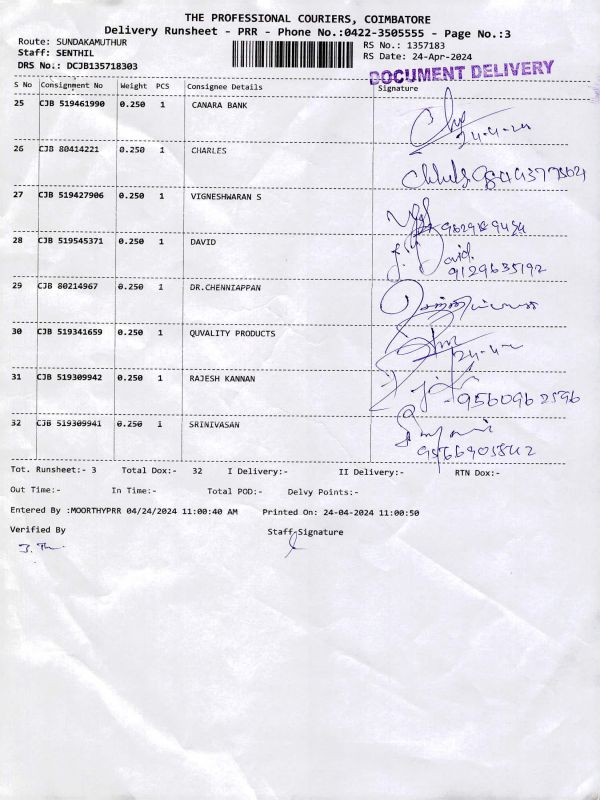 THE PROFESSIONAL COURIERS, COIMBATORE
Delivery Runsheet - PRR - Phone No.:0422-3505555 - Page No.:3
Route: SUNDAKAMUTHUR RS No.: 1357183
Staff: SENTHIL RS Date: 24-Apr-2024
DRS No.: DCJB135718303
DOCUMENT DELIVERY
S No Consignment No Weight PCS Consignee Details Signature
25 CJB 519461990 0.250 1 CANARA BANK
24-4-24
26 CJB 80414221 0.250 1 CHARLES
27 CJB 519427906 0.250 1 VIGNESHWARAN S
28 CJB 519545371 0.250 1 DAVID
David.
9129635192
29 CJB 80214967 0.250 1 DR.CHENNIAPPAN
30 CJB 519341659 0.250 1 QUVALITY PRODUCTS
31 CJB 519309942 0.250 1 RAJESH KANNAN
9560962596
32 CJB 519309941 0.250 1 SRINIVASAN
9566905842
Tot. Runsheet:- 3 Total Dox:- 32 I Delivery:- II Delivery:- RTN Dox:-
Out Time:- In Time:- Total POD:- Delvy Points:-
Entered By :MOORTHYPRR 04/24/2024 11:00:40 AM Printed On: 24-04-2024 11:00:50
Verified By Staff Signature